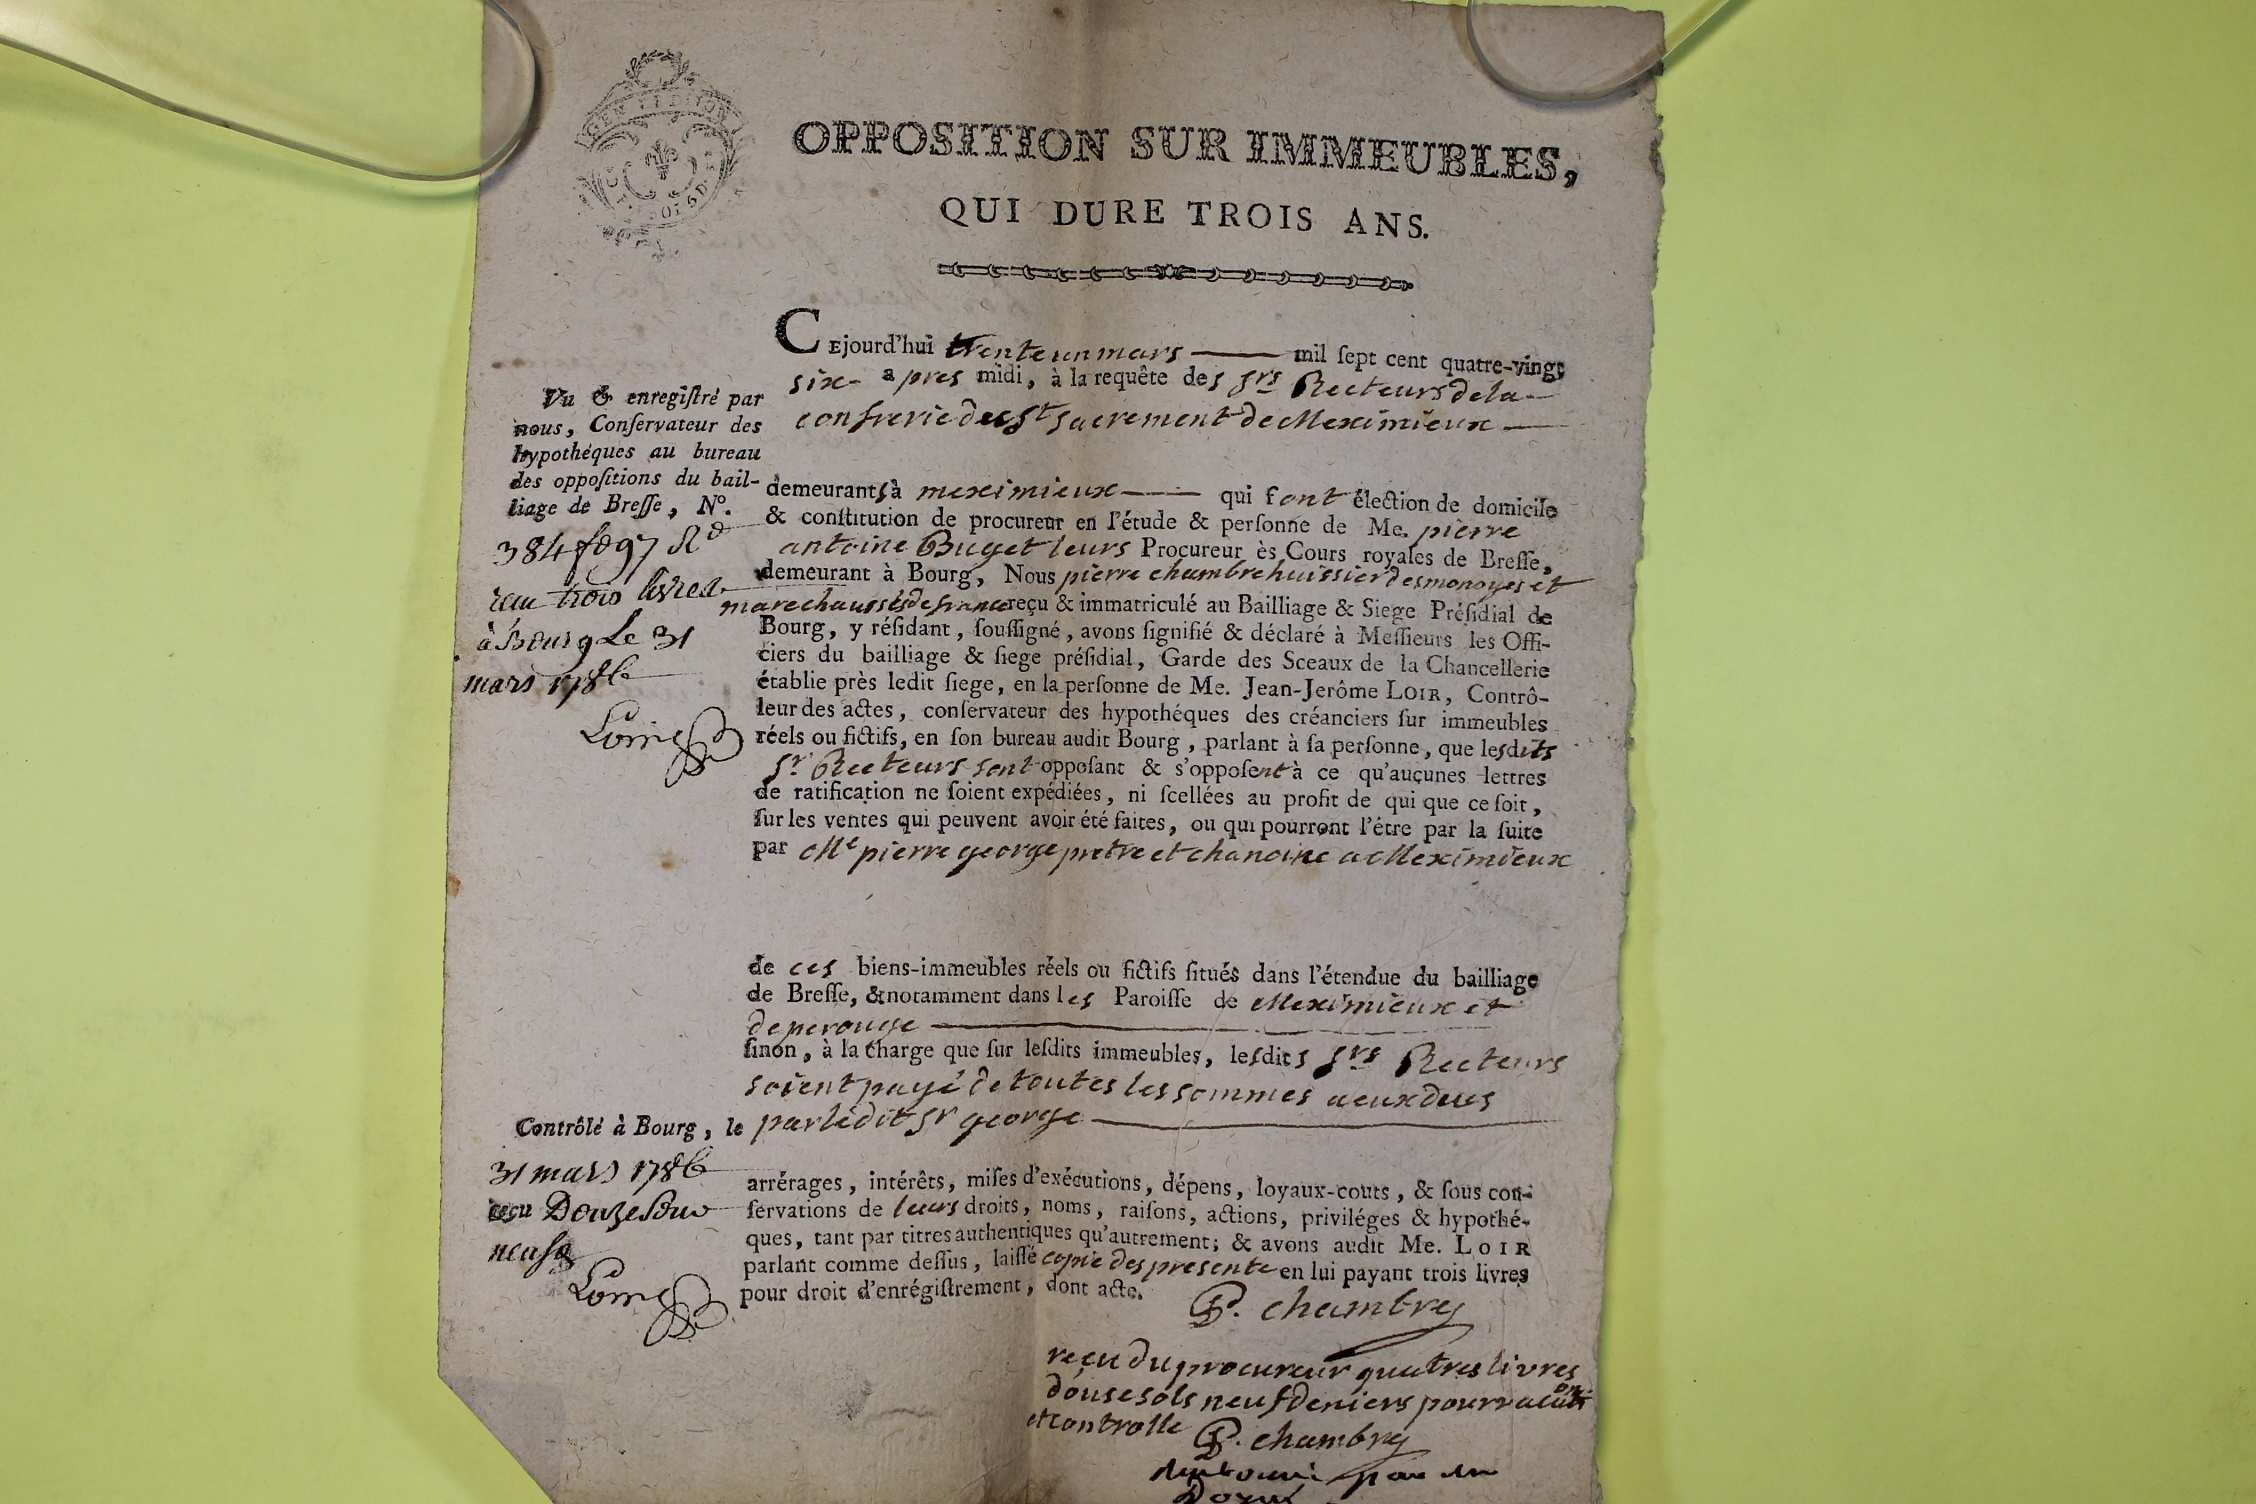 OPPOSITION SUR IMMEUBLES,
QUI DURE TROIS ANS.
CEjourd'hui trente un mars mil ſept cent quatre-vingt
six- apres midi, à la requête des srs Recteurs de la
confrerie du St sacrement de Meximieux
demeurants à meximieux qui font élection de domicile
& conſtitution de procureur en l'étude & perſonne de Me. pierre
antoine Buget leurs Procureur ès Cours royales de Breſſe,
demeurant à Bourg, Nous pierre chambre huissier des monoyes et
marechaussés de france reçu & immatriculé au Bailliage & Siege Préſidial de
Bourg, y réſidant, ſouſſigné, avons ſignifié & déclaré à Meſſieurs les Offi-
ciers du bailliage & ſiege préſidial, Garde des Sceaux de la Chancellerie
établie près ledit ſiege, en la perſonne de Me. Jean-Jerôme LOIR, Contrô-
leur des actes, conſervateur des hypothéques des créanciers ſur immeubles
réels ou fictifs, en ſon bureau audit Bourg, parlant à ſa perſonne, que lesdits
sr Recteurs sont oppoſant & s'oppoſent à ce qu'aucunes lettres
de ratification ne ſoient expédiées, ni ſcellées au profit de qui que ce ſoit,
ſur les ventes qui peuvent avoir été faites, ou qui pourront l'être par la ſuite
par Me pierre george pretre et chanoine a Meximieux
de ces biens-immeubles réels ou fictifs ſitués dans l'étendue du bailliage
de Breſſe, & notamment dans les Paroiſſe de Meximieux et
de perouge
ſinon, à la charge que ſur leſdits immeubles, lesdits srs Recteurs
soient payé de toutes les sommes a eux dues
par ledit sr george
arrérages, intérêts, miſes d'exécutions, dépens, loyaux-couts, & ſous con-
ſervations de leurs droits, noms, raiſons, actions, priviléges & hypothé-
ques, tant par titres authentiques qu'autrement; & avons audit Me. LOIR
parlant comme deſſus, laiſſé copie des presente en lui payant trois livres
pour droit d'enrégiſtrement, dont acte.
P. chambre
reçu du procureur quatres livres
douse sols neuf deniers pour
et controlle P. chambre
Vu & enregiſtré par
nous, Conſervateur des
hypothéques au bureau
des oppoſitions du bail-
liage de Breſſe, N°.
384 fo 97 Rd
reçu trois livres
à Bourg Le 31
mars 1786
Loir
Contrôlé à Bourg, le
31 mars 1786
reçu Douze sous
neuf d
Loir